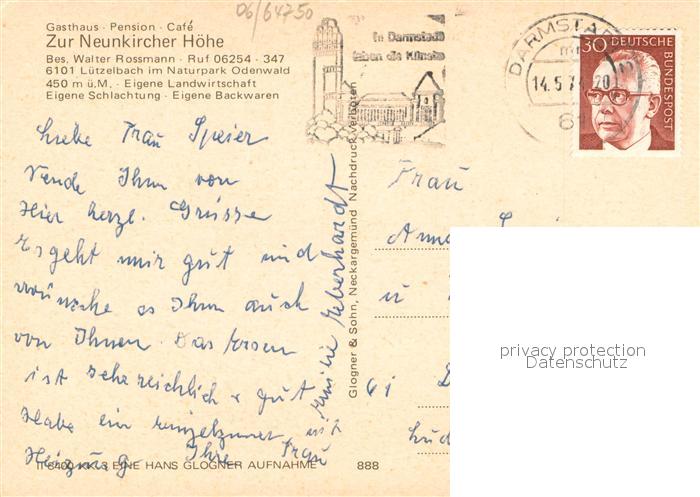 06/64750
Gasthaus · Pension · Café
Zur Neunkircher Höhe
Bes. Walter Rossmann · Ruf 06254 - 347
6101 Lützelbach im Naturpark Odenwald
450 m ü.M. · Eigene Landwirtschaft
Eigene Schlachtung · Eigene Backwaren
In Darmstadt
leben die Künste
DARMSTADT
14.5.74
30 DEUTSCHE BUNDESPOST
Liebe Frau Speier
Sende Ihnen von
Hier herzl. Grüsse
Es geht mir gut und
wünsche es Ihnen auch
von Ihnen. Das Essen
ist sehr reichlich u gut
Habe ein
Heizung. Ihre Frau
Eberhardt
Frau
Glogner & Sohn, Neckargemünd Nachdruck verboten
EINE HANS GLOGNER AUFNAHME 888
privacy protection
Datenschutz